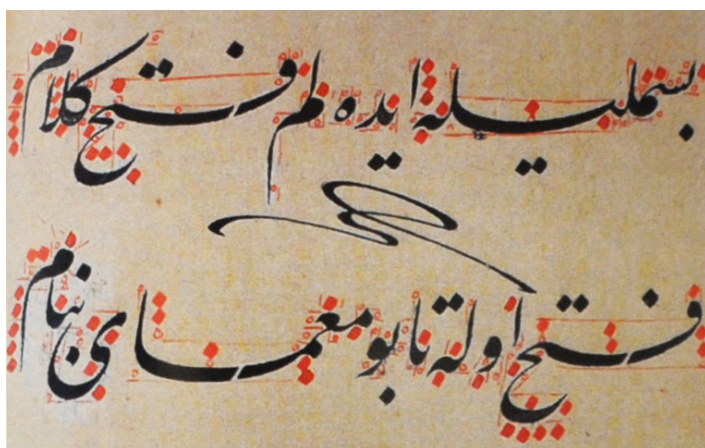 بسمله‌یله ایده‌لم فتح کلام
فتح اوله تا بو معمای بنام